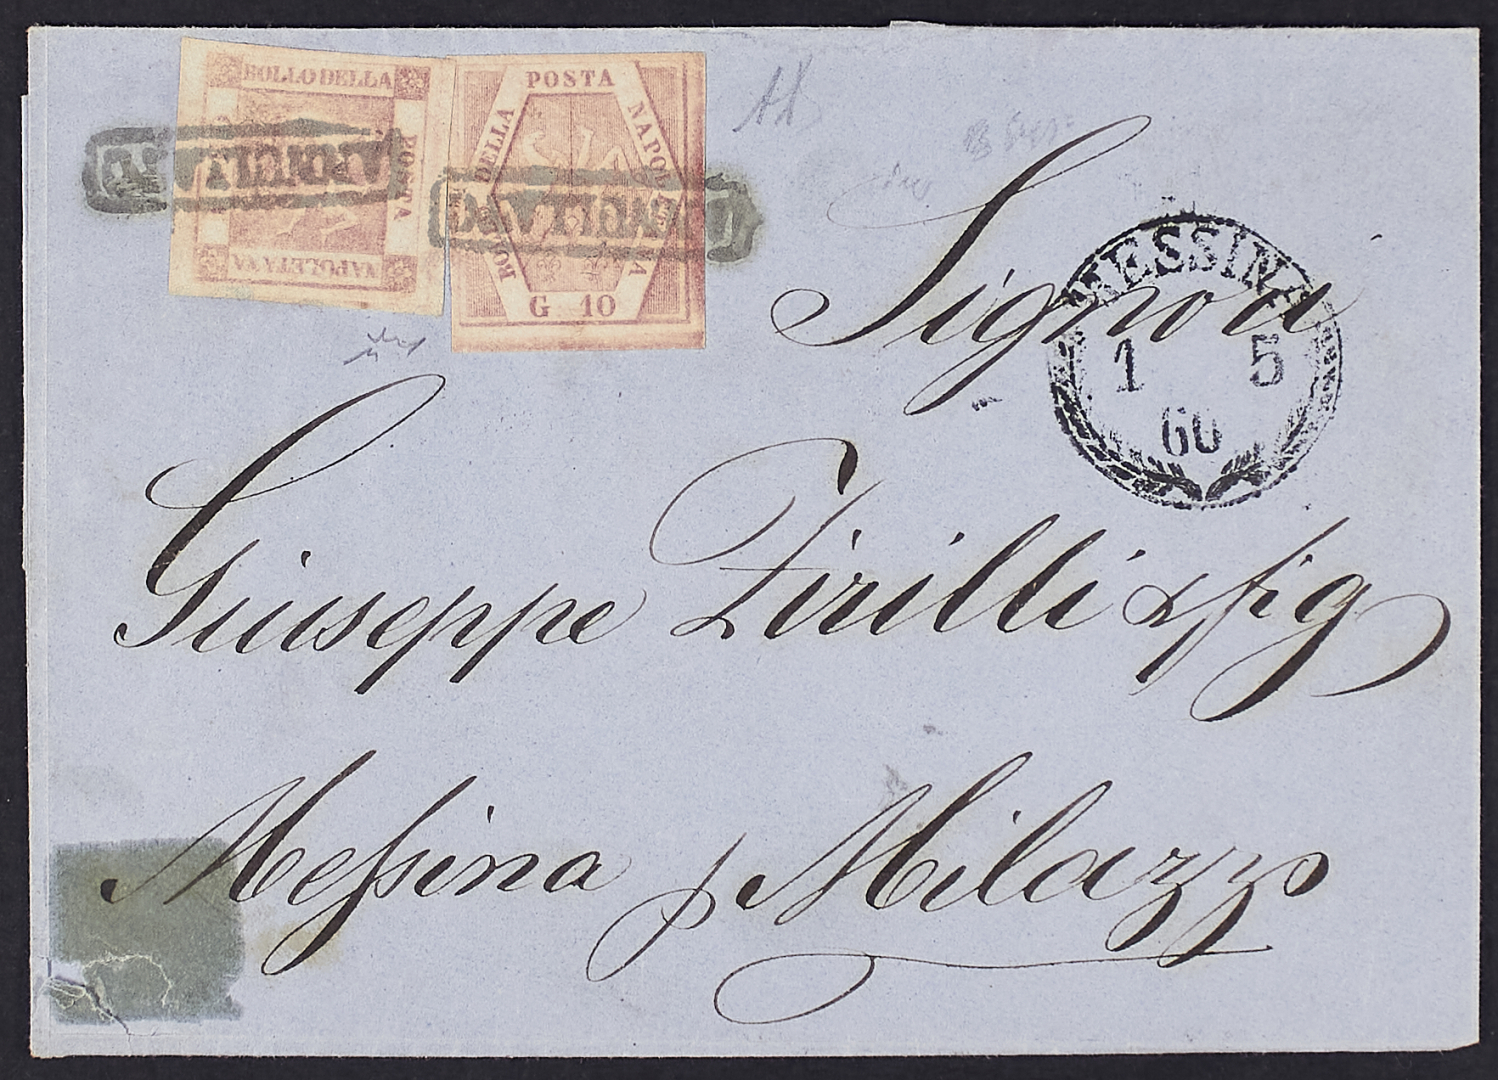 BOLLO DELLA
POSTA
NAPOLETANA
BOLLO DELLA POSTA NAPOLETANA
G. 10
ANNULLATO
ANNULLATO
MESSINA
1 5
60
Signori
Giuseppe Zirilli & fig
Messina p Milazzo